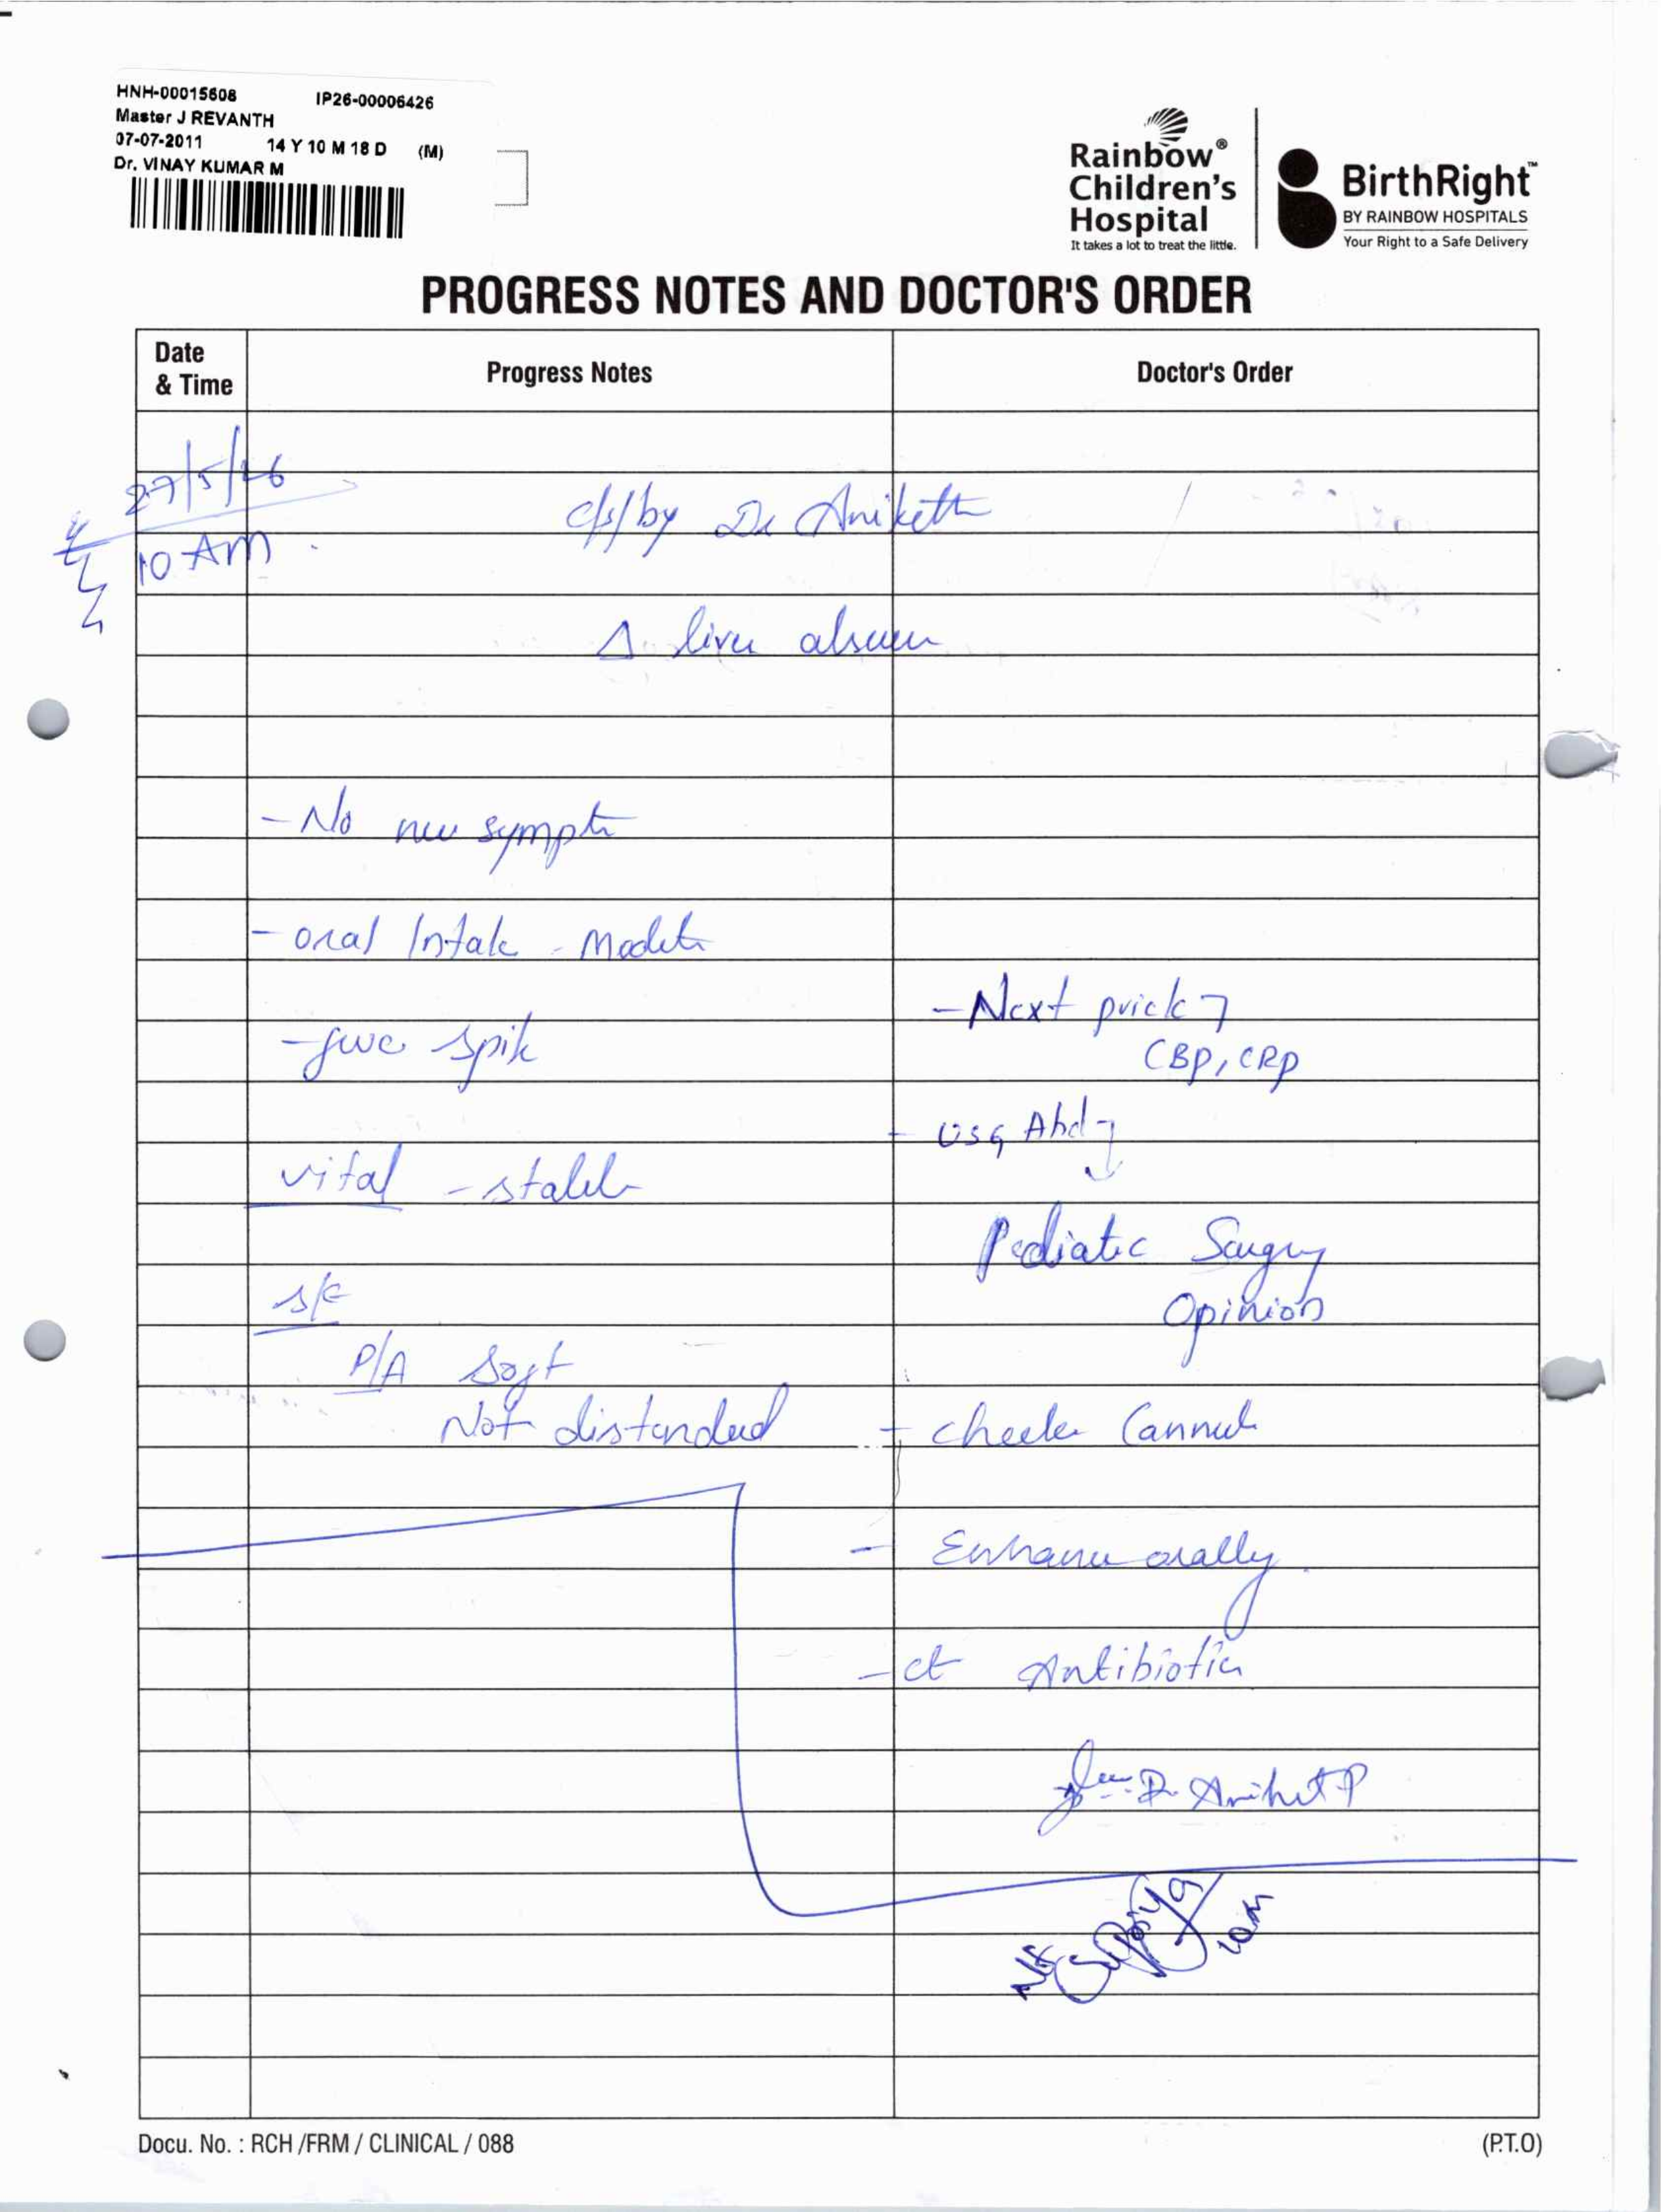 HNH-00015608 IP26-00006426
Master J REVANTH
07-07-2011 14 Y 10 M 18 D (M)
Dr. VINAY KUMAR M
Rainbow®
Children's
Hospital
It takes a lot to treat the little.
BirthRight™
BY RAINBOW HOSPITALS
Your Right to a Safe Delivery
PROGRESS NOTES AND DOCTOR'S ORDER
Date
& Time
Progress Notes
Doctor's Order
27/5/26
c/s/by Dr Aniketh
10 AM
Δ liver
- No new
- oral Intak - 
- Next prick
spik
CBP, CRP
- USG Abd
vital - 
Pediatic
Opinion
S/E
P/A Soft
Not distended
- Cannul
- orally
- ct Antibiotic
Dr. Aniket P
10am
Docu. No. : RCH /FRM / CLINICAL / 088
(P.T.O)